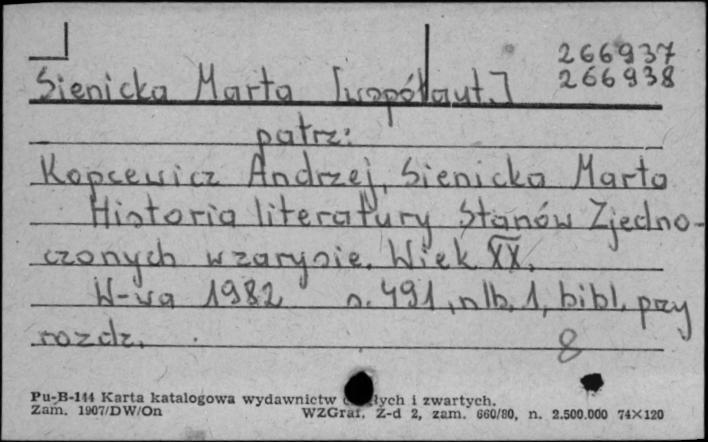 266937
Sienicka Marta [współaut.] 266938
patrz:
Kopcewicz Andrzej, Sienicka Marta
Historia literatury Stanów Zjedno-
czonych w zarysie. Wiek XX.
W-wa 1982 s. 491, nlb. 1, bibl. przy
rozdz.
8
Pu-B-144 Karta katalogowa wydawnictw ciągłych i zwartych.
Zam. 1907/DW/On WZGraf. Z-d 2, zam. 660/80, n. 2.500.000 74×120